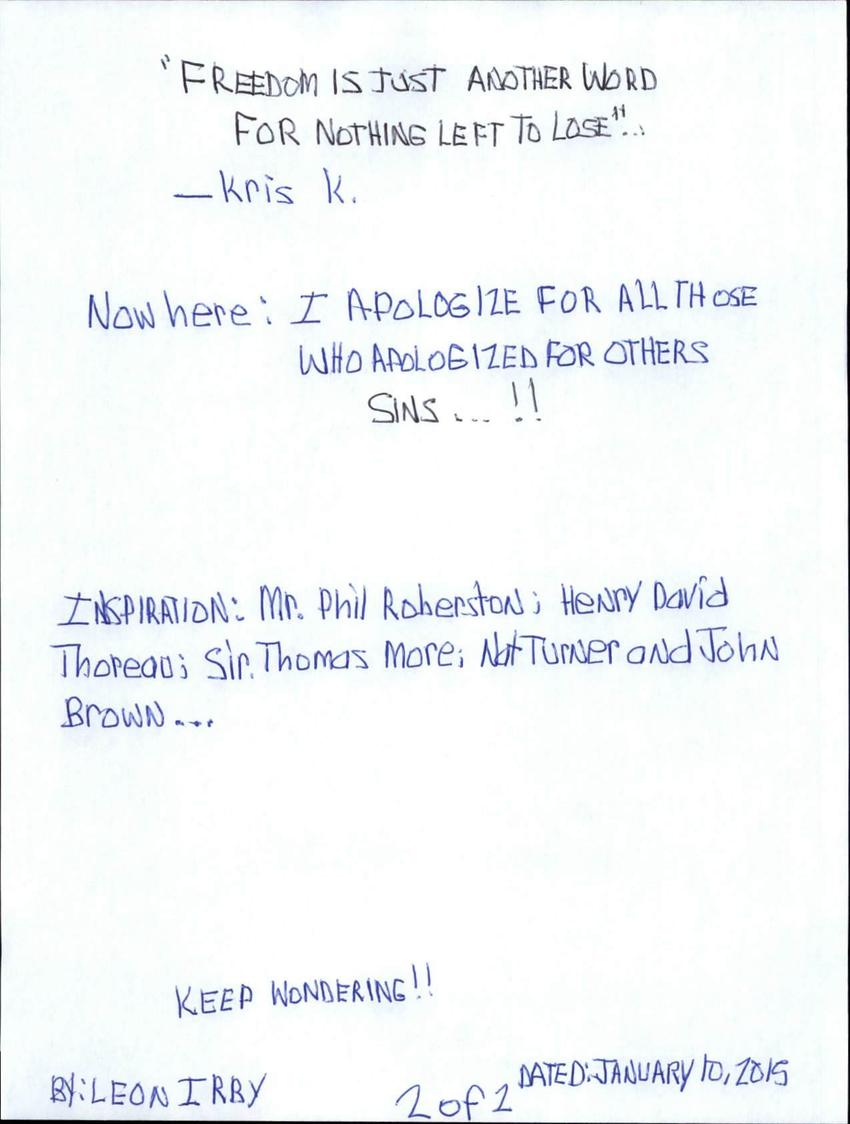 "FREEDOM IS JUST ANOTHER WORD
FOR NOTHING LEFT TO LOSE"...
— Kris K.
Now here: I APOLOGIZE FOR ALL THOSE
WHO APOLOGIZED FOR OTHERS
SINS... !!
INSPIRATION: Mr. Phil Roberston; HENRY David
Thoreau; Sir. Thomas More; Nat Turner and John
Brown...
KEEP WONDERING!!
BY: LEON IRBY
2 of 2
DATED: JANUARY 10, 2015